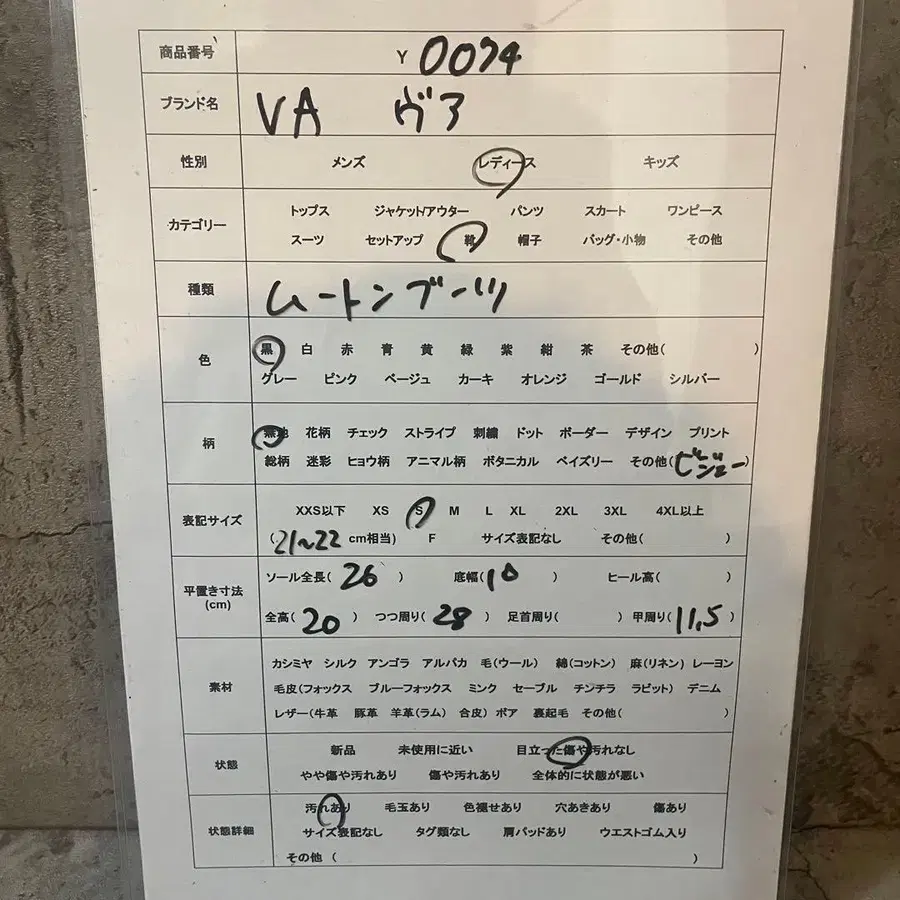 商品番号 Y 0074
ブランド名 VA ヴア
性別 メンズ レディース キッズ
カテゴリー
トップス ジャケット/アウター パンツ スカート ワンピース
スーツ セットアップ 靴 帽子 バッグ・小物 その他
種類 ムートンブーツ
色
黒 白 赤 青 黄 緑 紫 紺 茶 その他( )
グレー ピンク ベージュ カーキ オレンジ ゴールド シルバー
柄
無地 花柄 チェック ストライプ 刺繍 ドット ボーダー デザイン プリント
総柄 迷彩 ヒョウ柄 アニマル柄 ボタニカル ペイズリー その他(ビジュー)
表記サイズ
XXS以下 XS S M L XL 2XL 3XL 4XL以上
(21~22 cm相当) F サイズ表記なし その他( )
平置き寸法
(cm)
ソール全長( 26 ) 底幅( 10 ) ヒール高( )
全高( 20 ) つつ周り( 28 ) 足首周り( ) 甲周り( 11.5 )
素材
カシミヤ シルク アンゴラ アルパカ 毛(ウール) 綿(コットン) 麻(リネン) レーヨン
毛皮(フォックス ブルーフォックス ミンク セーブル チンチラ ラビット) デニム
レザー(牛革 豚革 羊革(ラム) 合皮) ボア 裏起毛 その他( )
状態
新品 未使用に近い 目立った傷や汚れなし
やや傷や汚れあり 傷や汚れあり 全体的に状態が悪い
状態詳細
汚れあり 毛玉あり 色褪せあり 穴あきあり 傷あり
サイズ表記なし タグ類なし 肩パッドあり ウエストゴム入り
その他 ( )